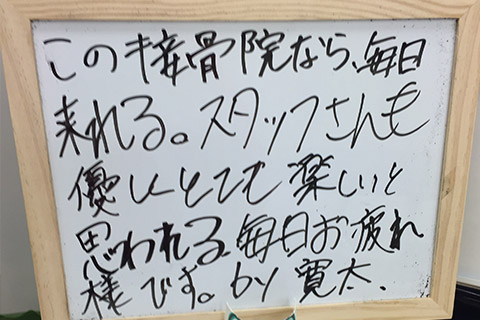 この接骨院なら、毎日
来れる。スタッフさんも
優しくとても楽しいと
思われる。毎日お疲れ
様です。by 寛太.